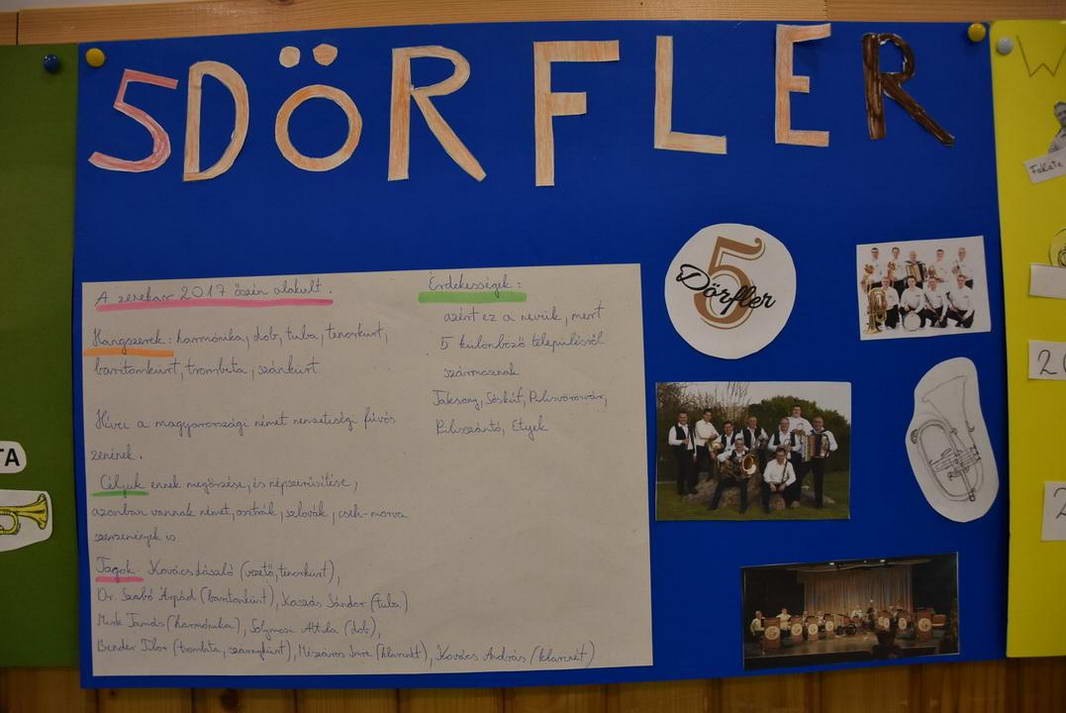 5DÖRFLER
A zenekar 2017 őszén alakult.
Hangszerek: harmónika, dob, tuba, tenorkürt,
baritonkürt, trombita, szárnykürt
Hívei a magyarországi német nemzetiségi fúvós
zenének.
Céljuk ennek megőrzése, és népszerűsítése,
azonban vannak német, osztrák, szlovák, cseh-morva
szerzemények is
Tagok: Kovács László (vezető, tenorkürt),
Dr. Szabó Árpád (baritonkürt), Kaszás Sándor (tuba)
Mirk Tamás (harmónika), Solymosi Attila (dob),
Bender Tibor (trombita, szárnykürt), Mészáros Imre (klarinét), Kovács András (klarinét)
Érdekességek:
azért ez a nevük, mert
5 különböző településről
származnak
Taksony, Sóskút, Pilisvörösvár,
Pilisszántó, Etyek
5
Dörfler
TA
W
Fekete
2